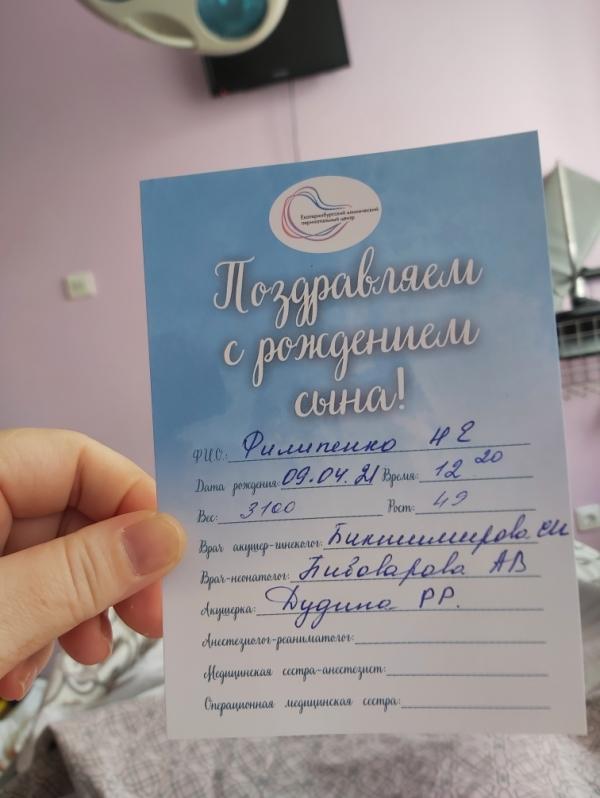 Екатеринбургский клинический
перинатальный центр
Поздравляем
с рождением
сына!
Ф.И.О.: Филипенко Н Е
Дата рождения: 09.04.21 Время: 12 20
Вес: 3100 Рост: 49
Врач акушер-гинеколог: Бикташирова
Врач-неонатолог: Пивоварова АВ
Акушерка: Дудина РР.
Анестезиолог-реаниматолог:
Медицинская сестра-анестезист:
Операционная медицинская сестра: